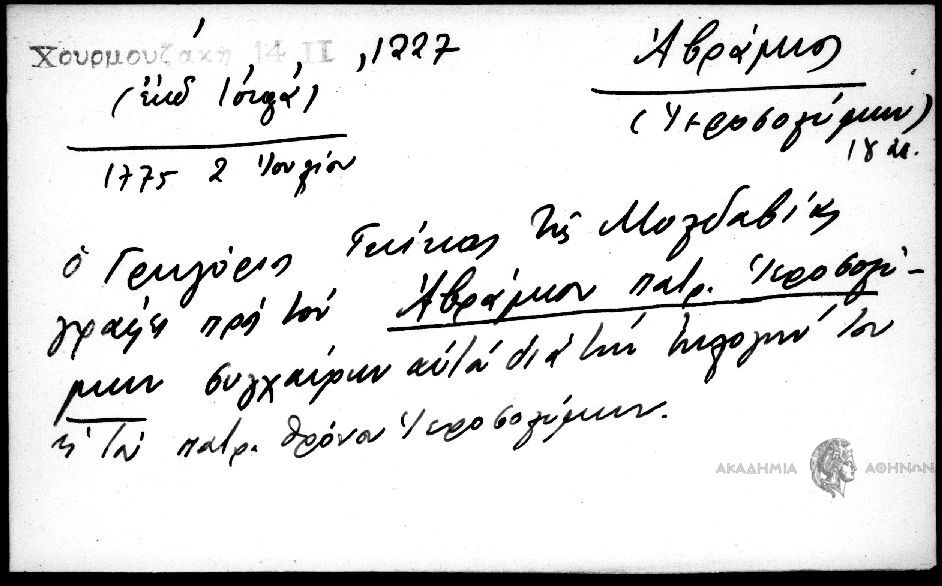 Χουρμουζάκη 14 II, 1227
Ἀβράμιος
(Ἱεροσολύμων)
18 αι.
1775 2 Ἰουλίου
ὁ Γρηγόριος Γκίκας τῆς Μολδαβίας
γράφει πρὸς τὸν Ἀβράμιον πατρ. Ἱεροσολύ-
μων συγχαίρων αὐτὸν διὰ τὴν ἐκλογήν του
εἰς τὸν πατρ. θρόνον Ἱεροσολύμων.
ΑΚΑΔΗΜΙΑ ΑΘΗΝΩΝ